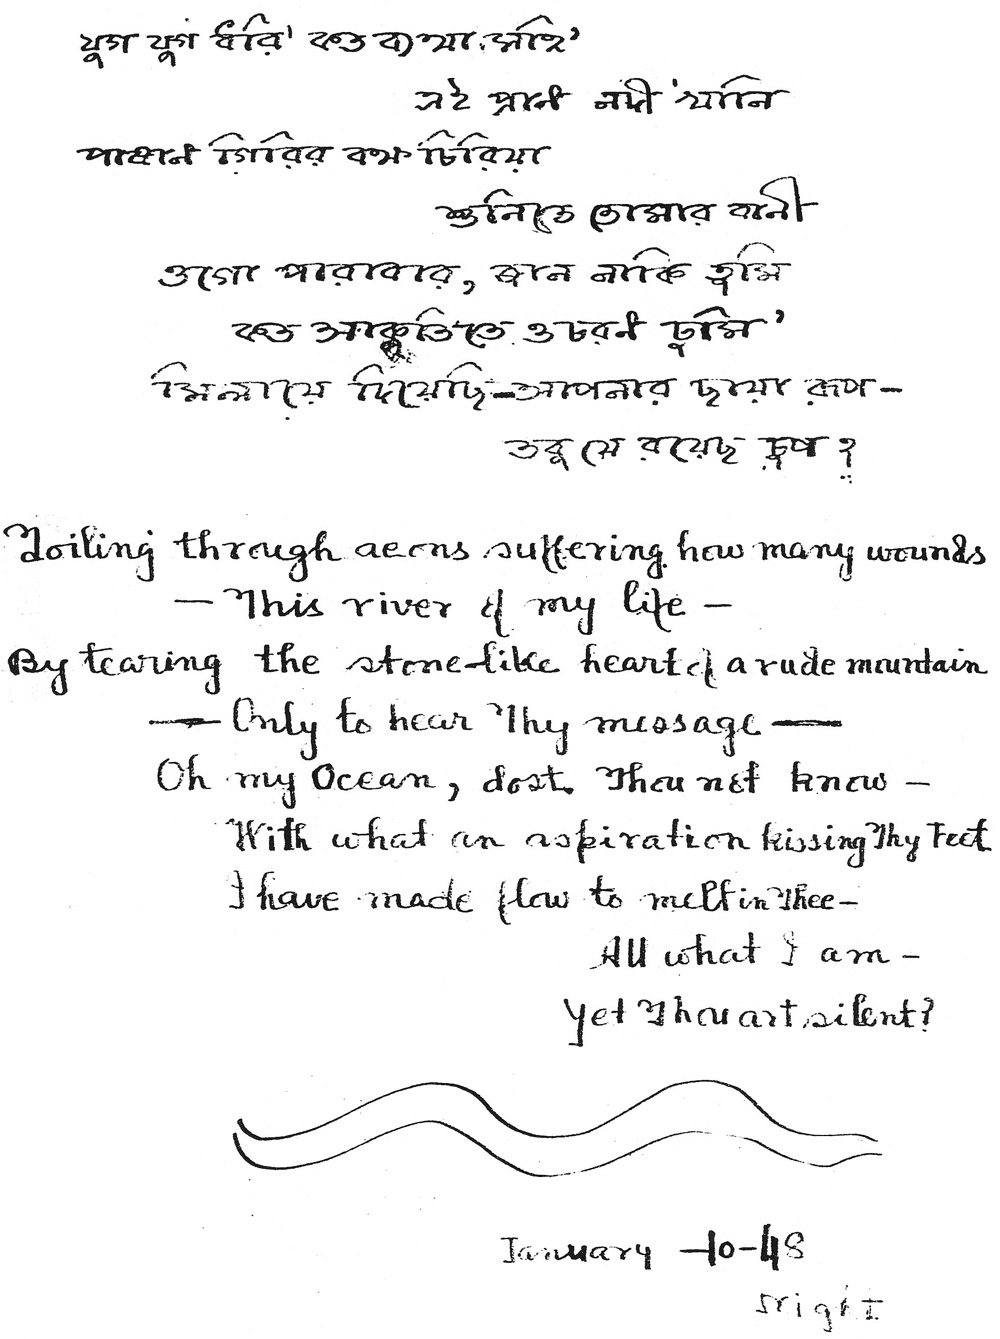 যুগ যুগ ধরি' কত ব্যথা সহি'
এই প্রাণ নদী খানি
পাষাণ গিরির বক্ষ চিরিয়া
শুনিতে তোমার বানী
ওগো পারাবার, জান নাকি তুমি
কত আকুতিতে ও চরণ চুমি'
মিলায়ে দিয়েছি—আপনার ছায়া রূপ—
তবু যে রয়েছ চুপ?
Toiling through aeons suffering how many wounds
— This river of my life —
By tearing the stone-like heart of a rude mountain
— Only to hear Thy message —
Oh my Ocean, dost Thou not know —
With what an aspiration kissing Thy Feet
I have made flow to melt in Thee —
All what I am —
Yet Thou art silent?
January -10-48
Night